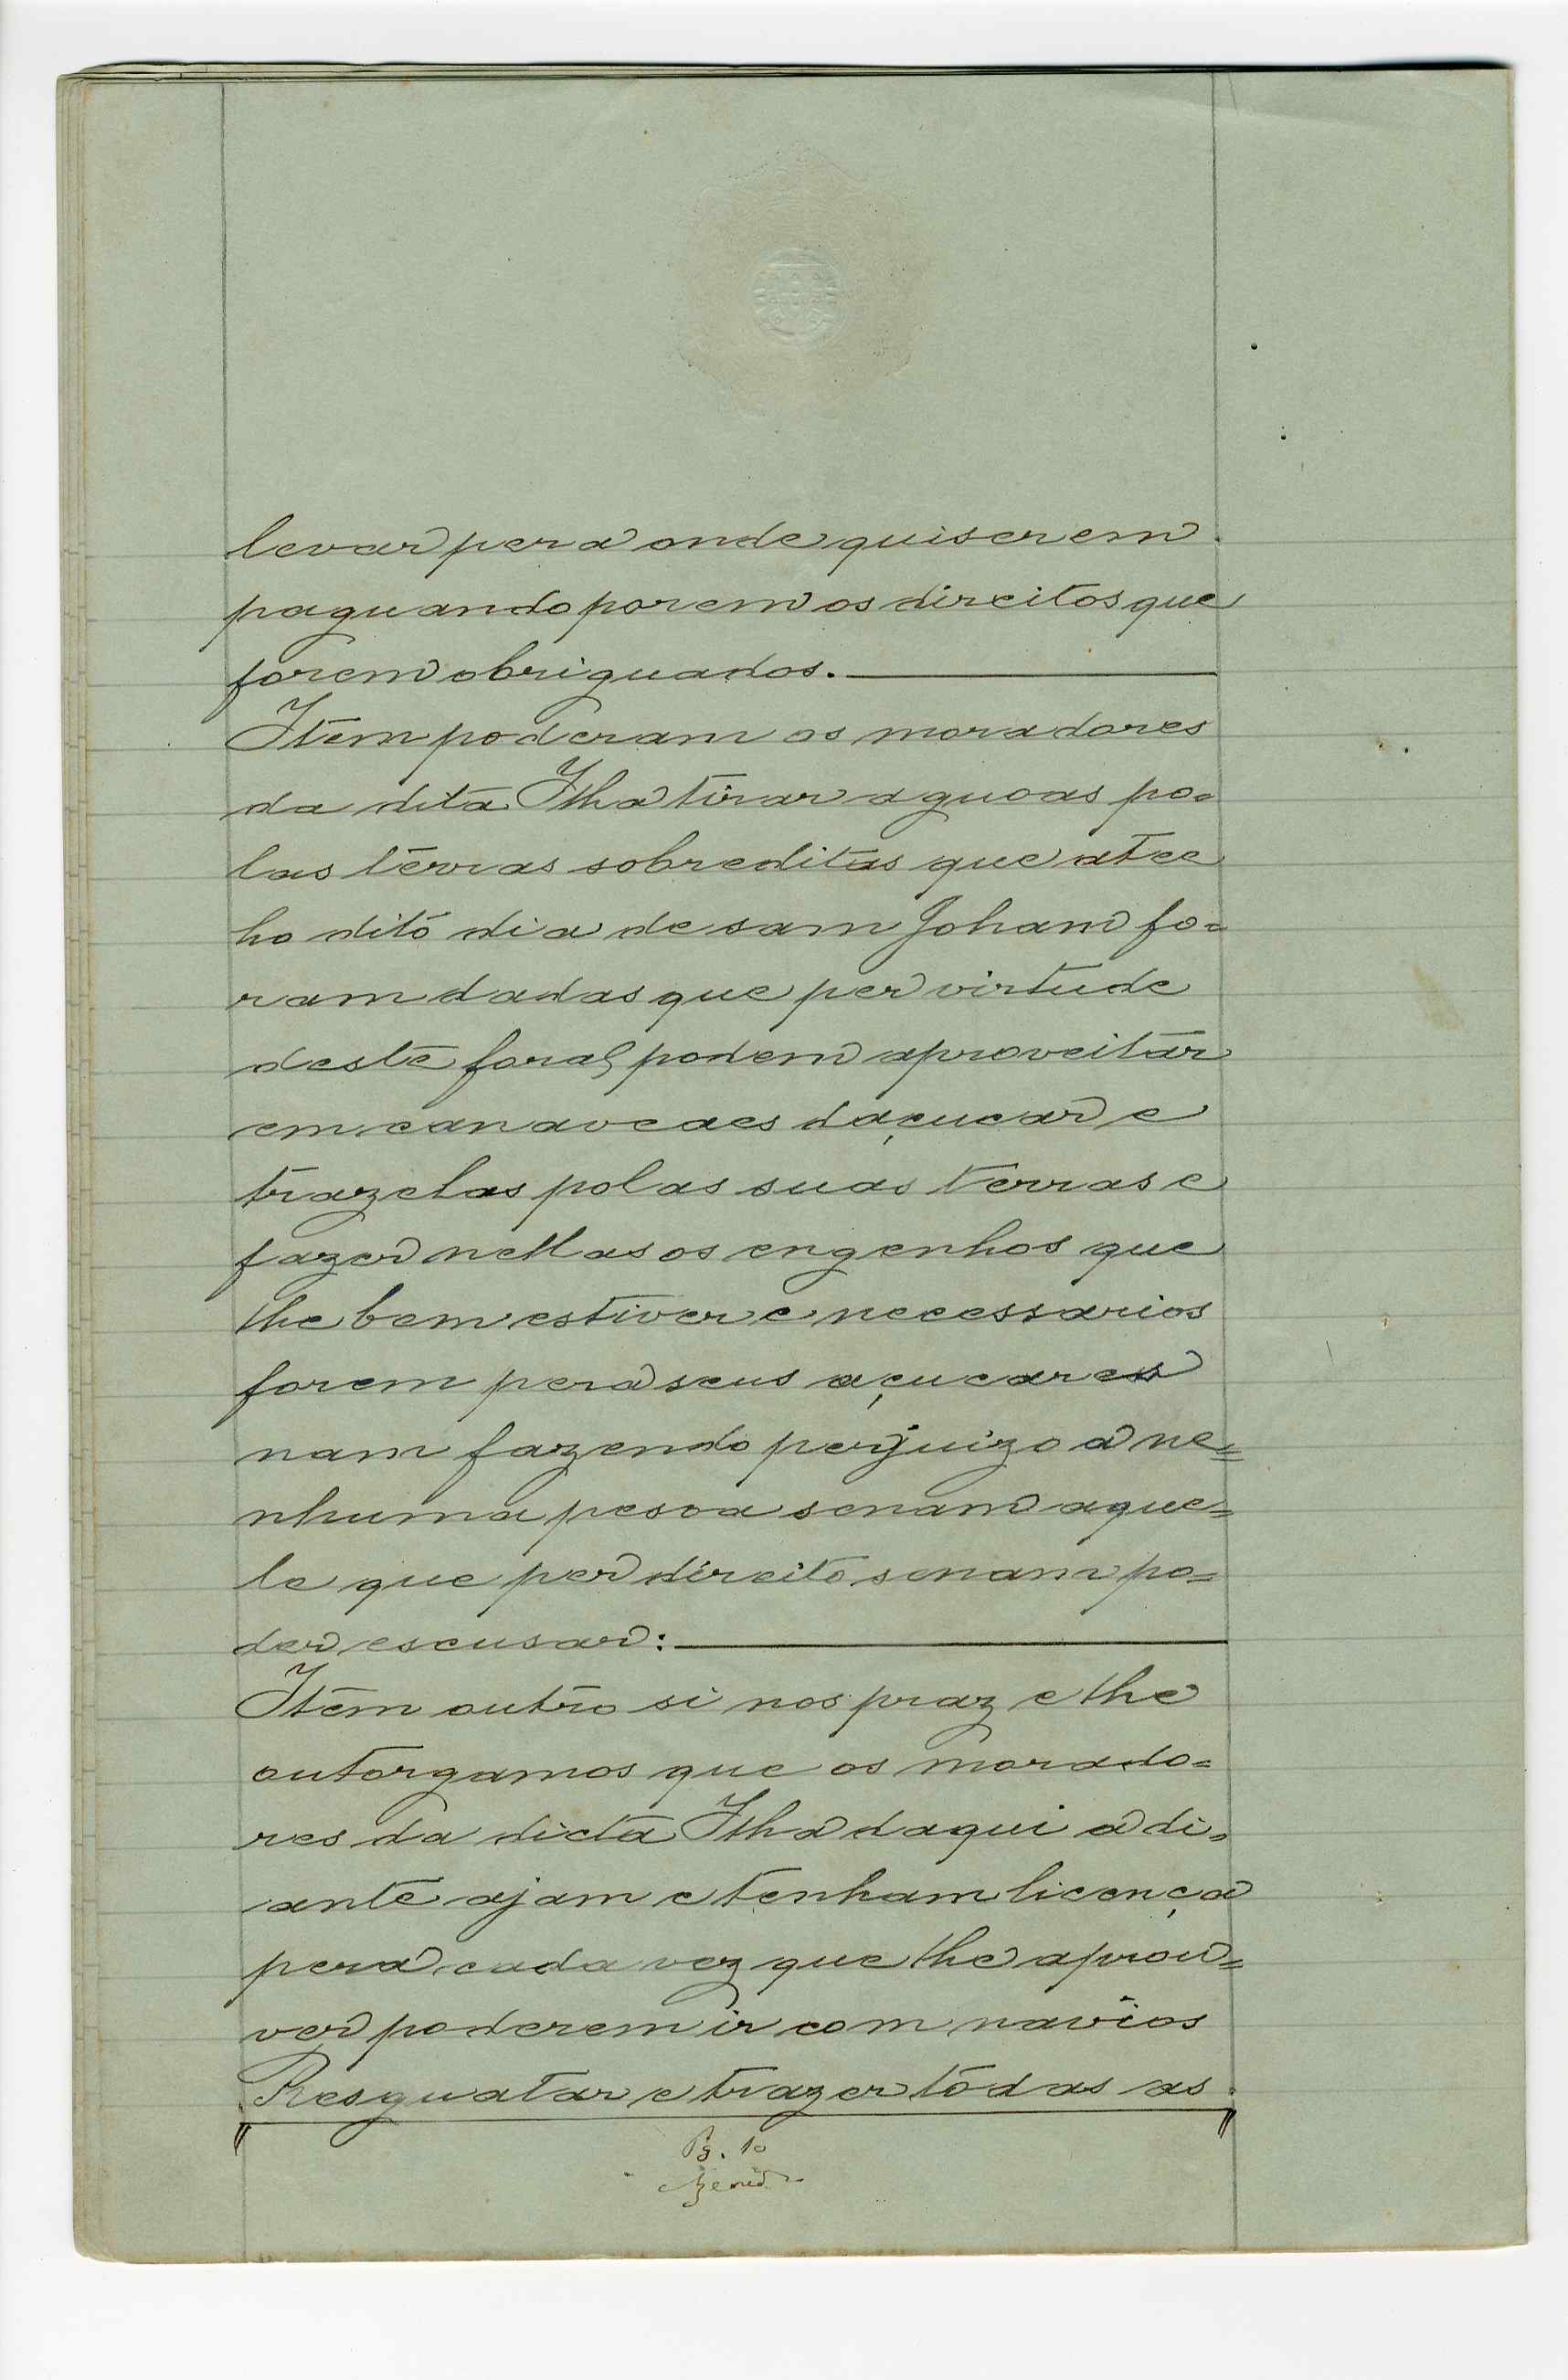 levar pera onde quiserem
paguando porem os direitos que
forem obriguados.
Item poderam os moradores
da dita Ilha tirar aguoas po=
las terras sobreditas que atee
ho dito dia de sam Joham fo=
ram dadas que per virtude
deste foral podem aproveitar
em canaveaes daçucar e
trazelas polas suas terras e
fazer nellas os engenhos que
lhe bem estiver e necessarios
forem pera seus açucares
nam fazendo perjuizo a ne=
nhuma pesoa senam aque=
le que per direito senam po=
der escusar:
Item outro si nos praz e lhe
outorgamos que os morado=
res da dicta Ilha daqui a di=
ante ajam e tenham licença
pera cada vez que lhe aprou=
ver poderem ir com navios
Resguatar e trazer todas as
Pg. 10